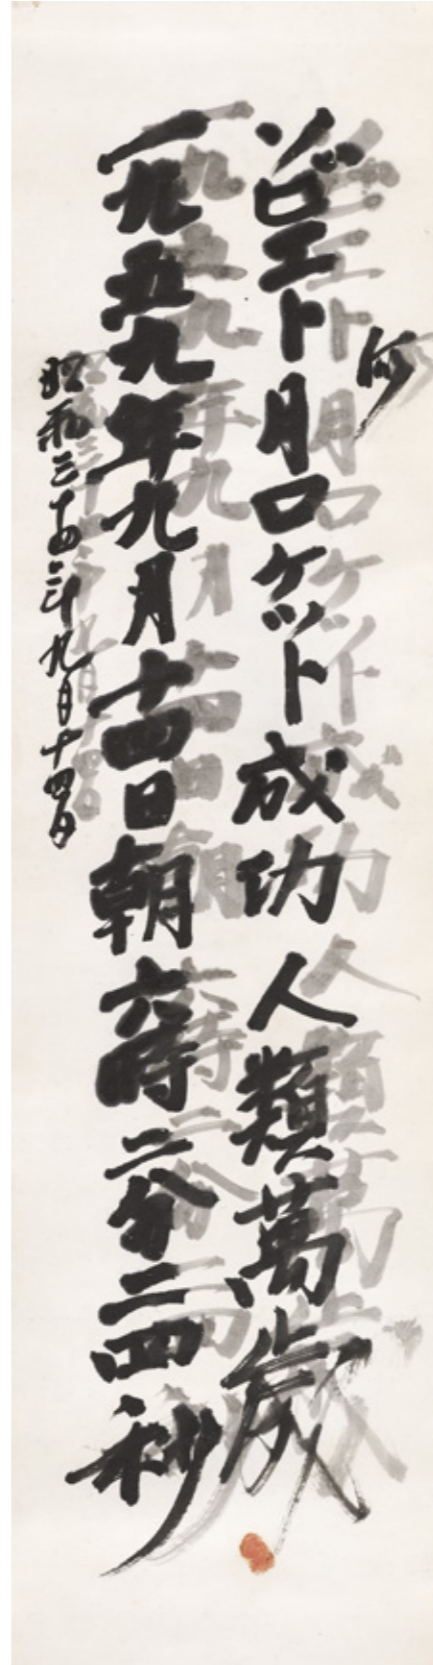 ソビエト月ロケット成功人類萬歳
一九五九年九月十四日朝六時二分二四秒
昭和三十四年九月十四日